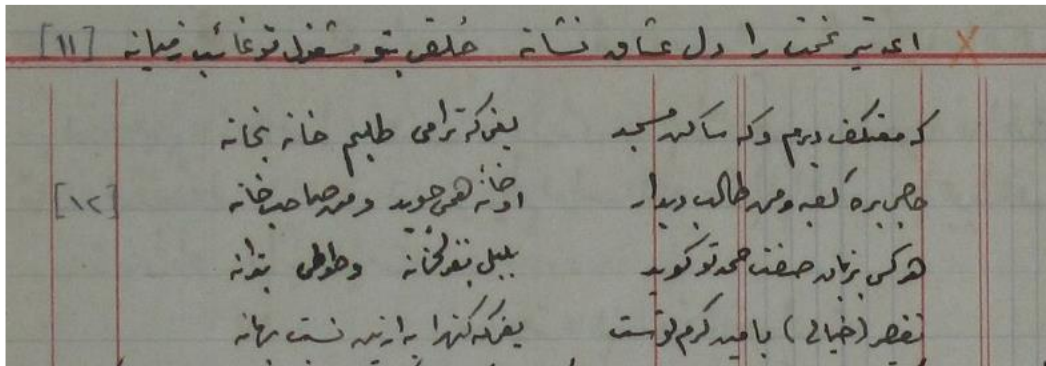 ای تیر غمت را دل عشاق نشانه خلقی بتو مشغول تو غائب زمیانه [١١]
که معتکف دیرم و گه ساکن مسجد یعنی که ترا می طلبم خانه بخانه
حاجی بره کعبه و من طالب دیدار او خانه همی جوید و من صاحب خانه [١٢]
هر کس بزبان صفت حمد تو گوید بلبل بغزلخانه و طوطی بترانه
تقصیر (خیالی) بامید کرم تو است یعنی که گنه را به ازین نیست بهانه